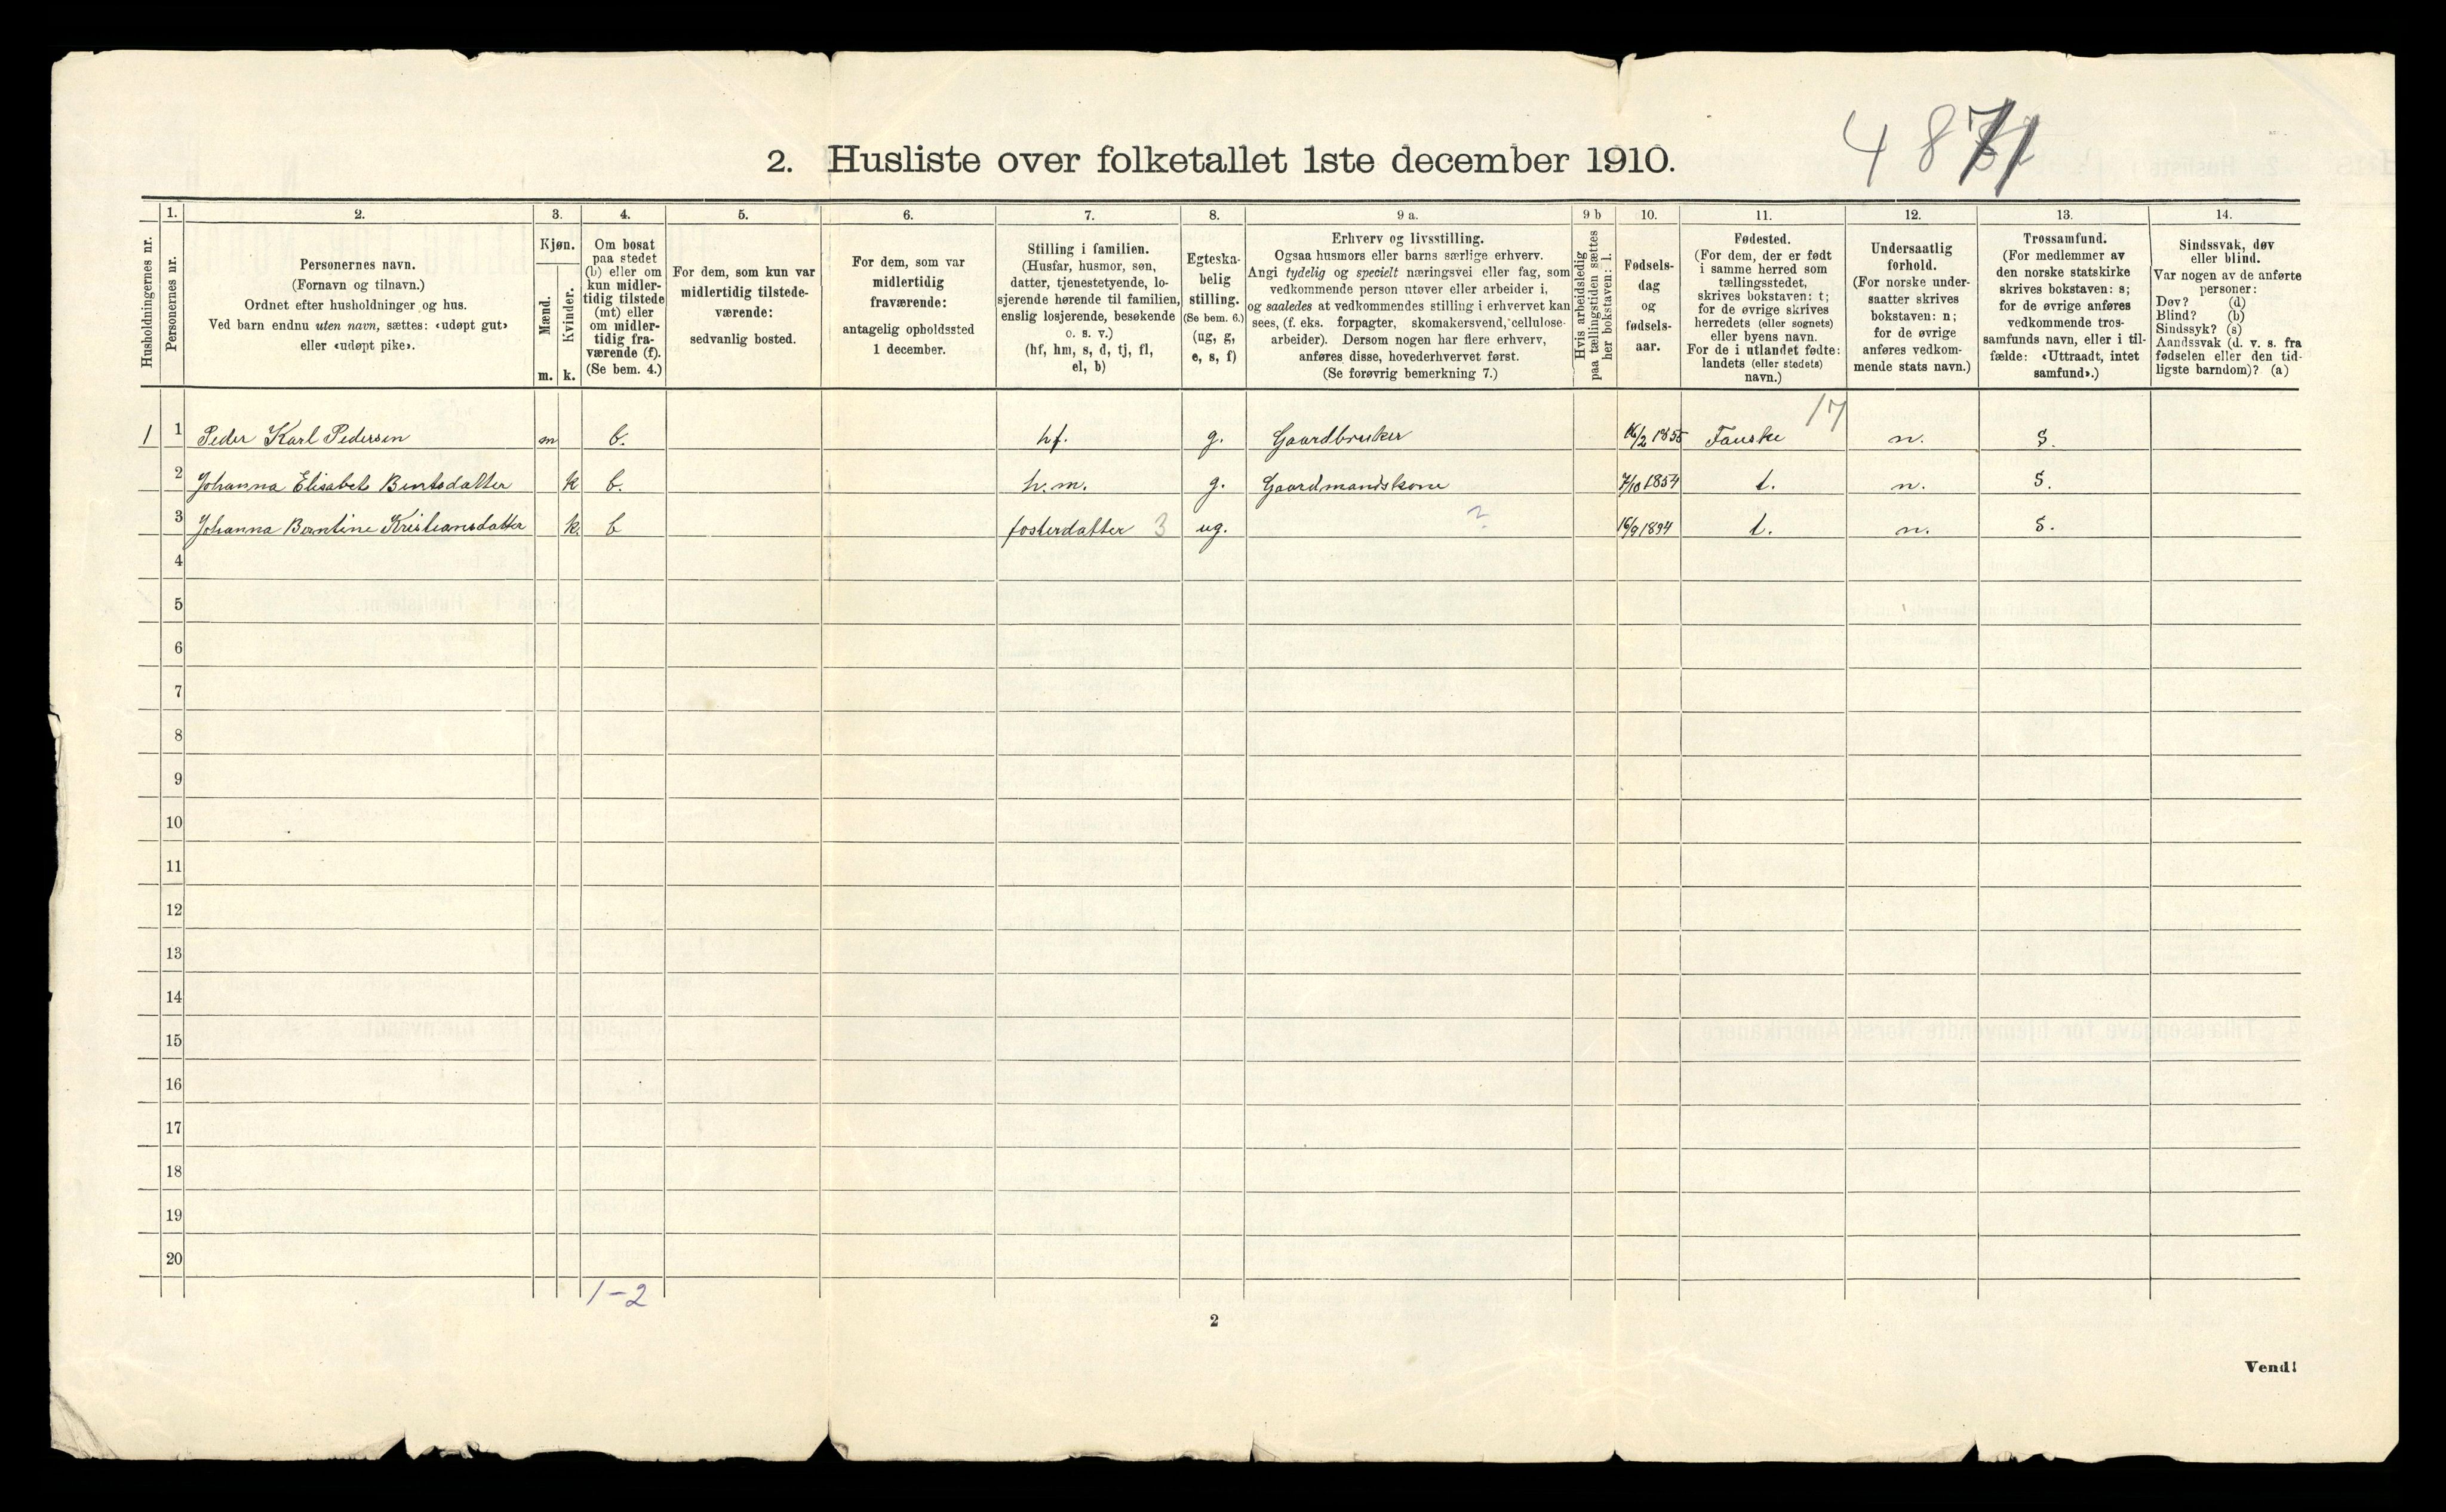 4871
2. Husliste over folketallet 1ste december 1910.
Husholdningernes nr.
1.
Personernes nr.
2.
Personernes navn.
(Fornavn og tilnavn.)
Ordnet efter husholdninger og hus.
Ved barn endnu uten navn, sættes: «udøpt gut»
eller «udøpt pike».
3.
Kjøn.
Mænd.
Kvinder.
m. k.
4.
Om bosat
paa stedet
(b) eller om
kun midler-
tidig tilstede
(mt) eller
om midler-
tidig fra-
værende (f).
(Se bem. 4.)
5.
For dem, som kun var
midlertidig tilstede-
værende:
sedvanlig bosted.
6.
For dem, som var
midlertidig
fraværende:
antagelig opholdssted
1 december.
7.
Stilling i familien.
(Husfar, husmor, søn,
datter, tjenestetyende, lo-
sjerende hørende til familien,
enslig losjerende, besøkende
o. s. v.)
(hf, hm, s, d, tj, fl,
el, b)
8.
Egteska-
belig
stilling.
(Se bem. 6.)
(ug, g,
e, s, f)
9 a.
Erhverv og livsstilling.
Ogsaa husmors eller barns særlige erhverv.
Angi tydelig og specielt næringsvei eller fag, som
vedkommende person utøver eller arbeider i,
og saaledes at vedkommendes stilling i erhvervet kan
sees, (f. eks. forpagter, skomakersvend, cellulose-
arbeider). Dersom nogen har flere erhverv,
anføres disse, hovederhvervet først.
(Se forøvrig bemerkning 7.)
9 b
Hvis arbeidsledig
paa tællingstiden sættes
her bokstaven: l.
10.
Fødsels-
dag
og
fødsels-
aar.
11.
Fødested.
(For dem, der er født
i samme herred som
tællingsstedet,
skrives bokstaven: t;
for de øvrige skrives
herredets (eller sognets)
eller byens navn.
For de i utlandet fødte:
landets (eller stedets)
navn.)
12.
Undersaatlig
forhold.
(For norske under-
saatter skrives
bokstaven: n;
for de øvrige
anføres vedkom-
mende stats navn.)
13.
Trossamfund.
(For medlemmer av
den norske statskirke
skrives bokstaven: s;
for de øvrige anføres
vedkommende tros-
samfunds navn, eller i til-
fælde: «Uttraadt, intet
samfund».)
14.
Sindssvak, døv
eller blind.
Var nogen av de anførte
personer:
Døv? (d)
Blind? (b)
Sindssyk? (s)
Aandssvak (d. v. s. fra
fødselen eller den tid-
ligste barndom)? (a)
17
1 1 Peder Karl Pedersen m b. hf. g. Gaardbruker 16/2 1855 Fauske n. S.
2 Johanna Elisabet Berntsdatter k b. h.m. g. Gaardmandskone 7/10 1854 t. n. S.
3 Johanna Berntine Kristiansdatter k. b fosterdatter 3 ug. ? 16/9 1894 t. n. S.
4
5
6
7
8
9
10
11
12
13
14
15
16
17
18
19
20
1-2
2
Vend!